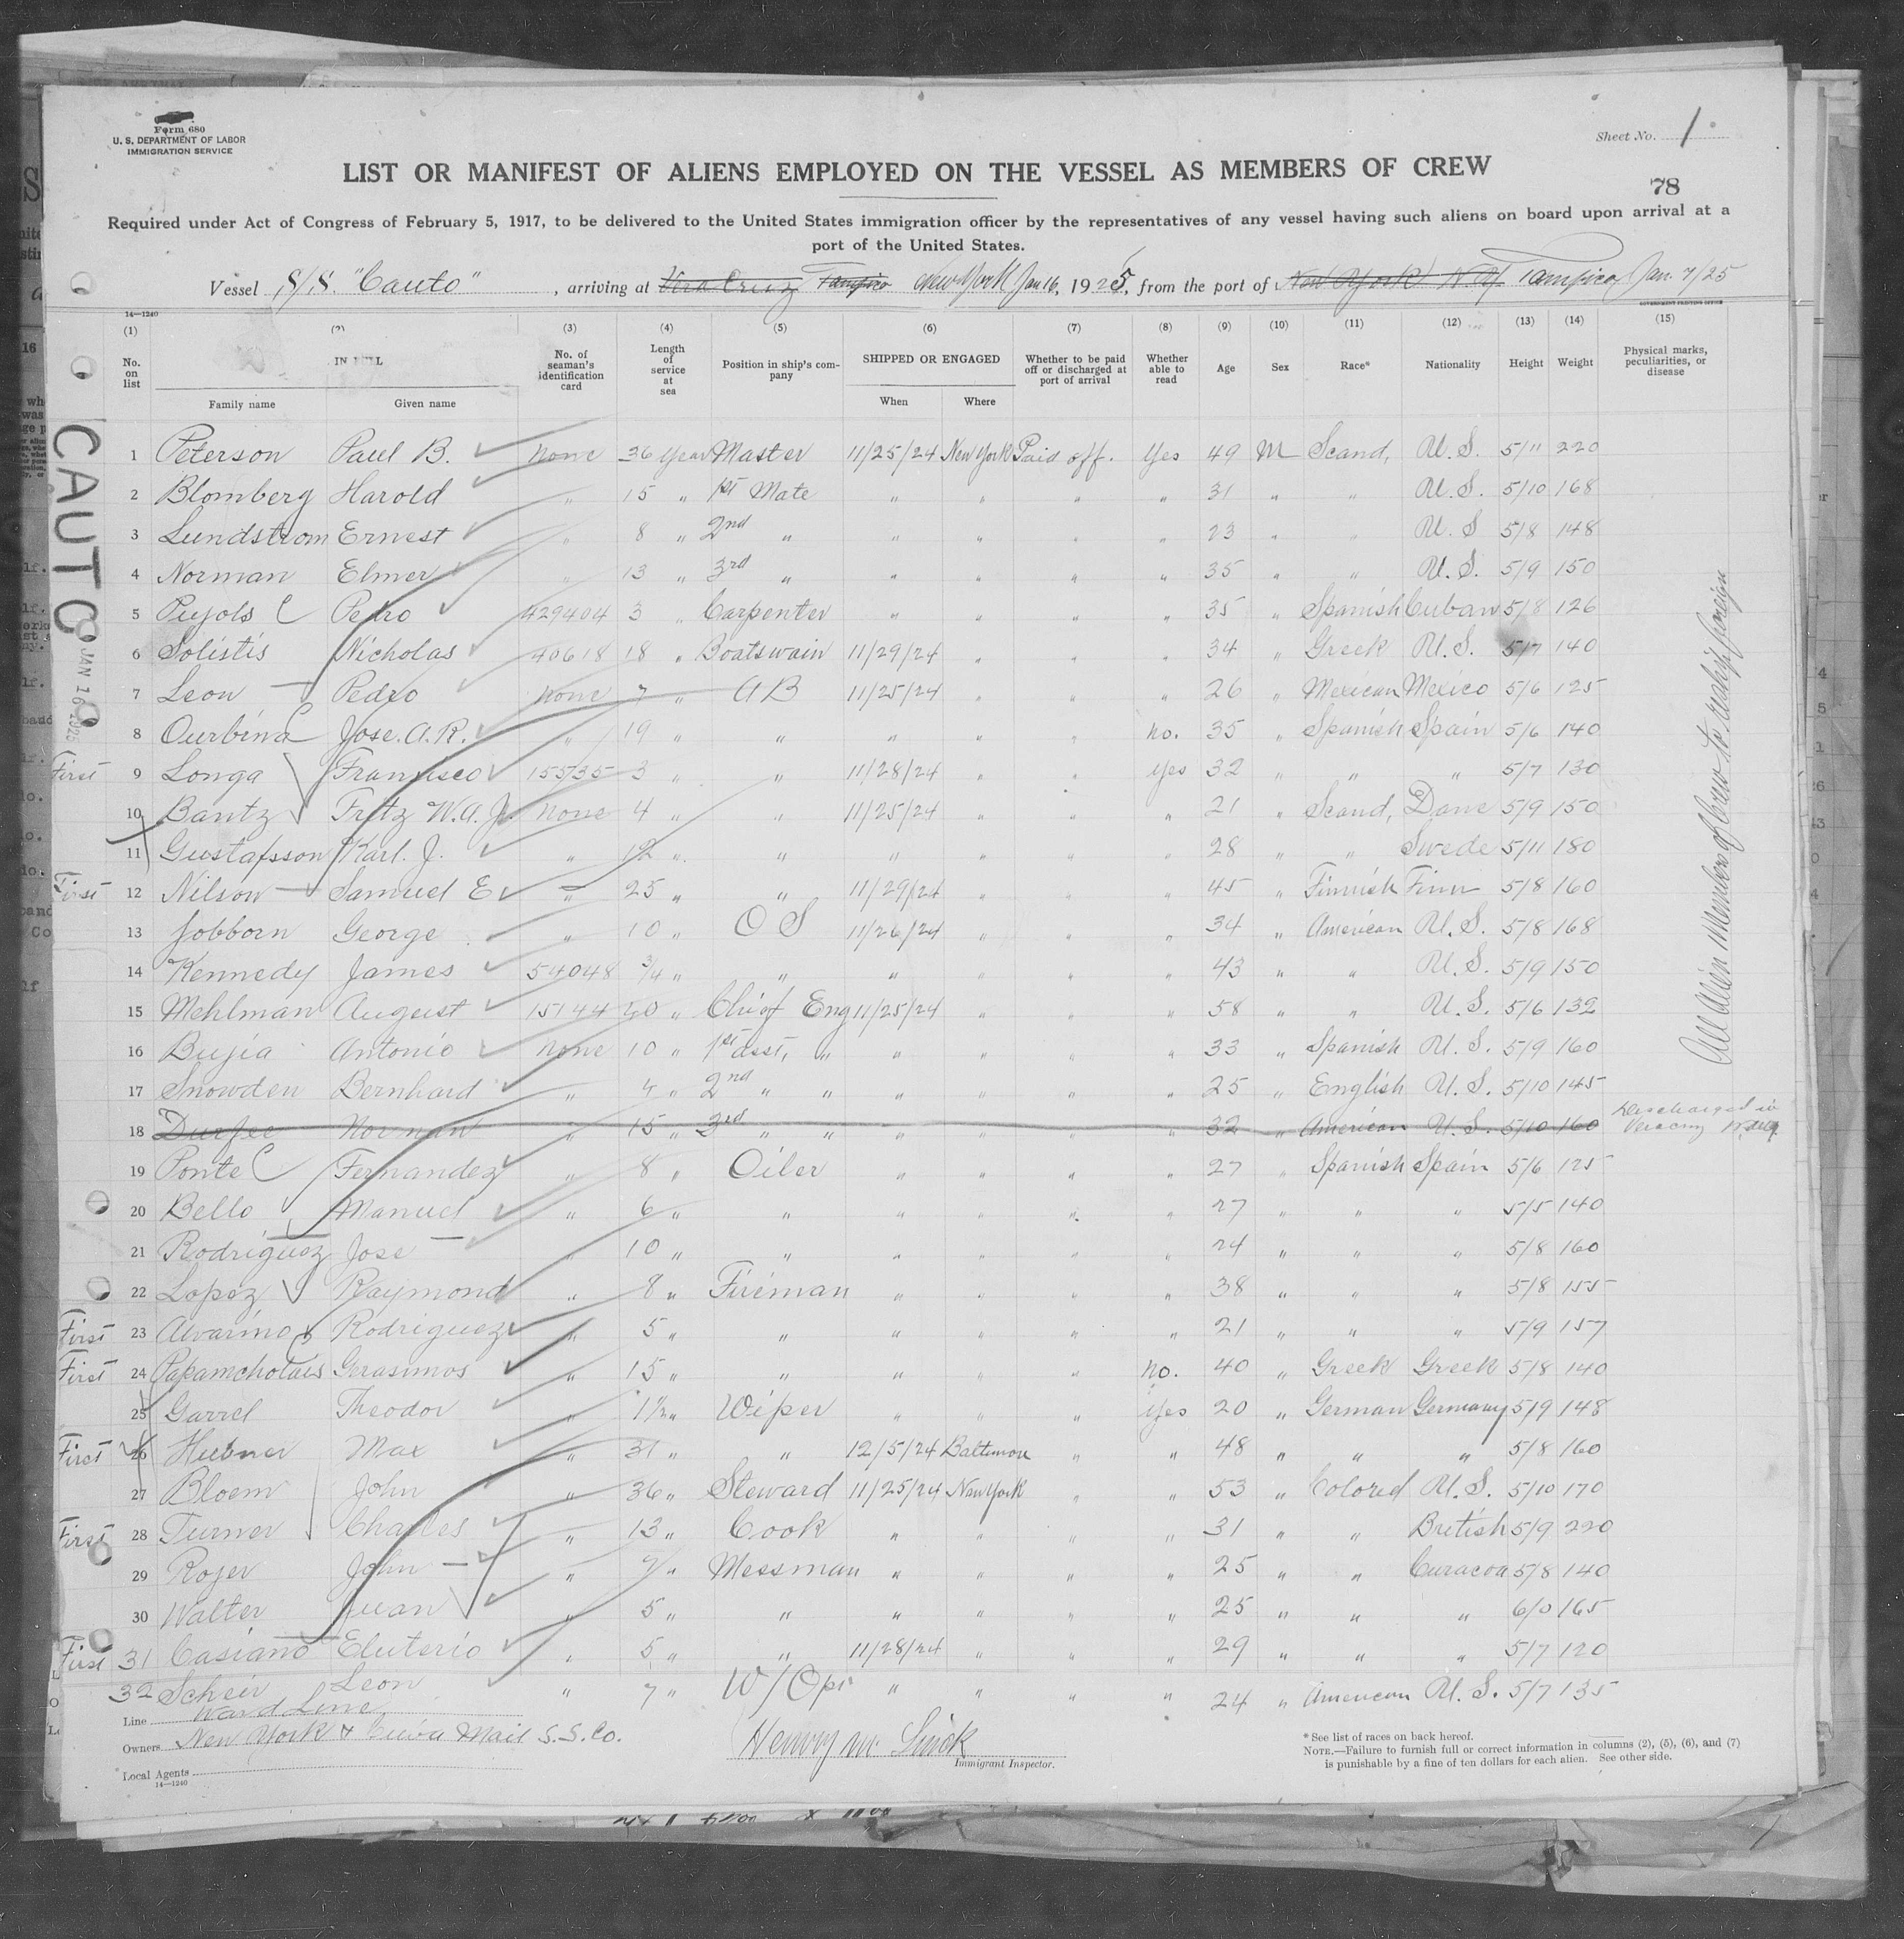 Form 680
U. S. DEPARTMENT OF LABOR
IMMIGRATION SERVICE
Sheet No. 1
LIST OR MANIFEST OF ALIENS EMPLOYED ON THE VESSEL AS MEMBERS OF CREW
78
Required under Act of Congress of February 5, 1917, to be delivered to the United States immigration officer by the representatives of any vessel having such aliens on board upon arrival at a
port of the United States.
Vessel S/S. "Cauto", arriving at Vera Cruz Tampico New York Jan 16, 1925, from the port of New York N.Y. Tampico Jan. 7/25
14—1240
GOVERNMENT PRINTING OFFICE
(1) (2) (3) (4) (5) (6) (7) (8) (9) (10) (11) (12) (13) (14) (15)
No. on list IN FULL Family name Given name No. of seaman's identification card Length of service at sea Position in ship's company SHIPPED OR ENGAGED When Where Whether to be paid off or discharged at port of arrival Whether able to read Age Sex Race* Nationality Height Weight Physical marks, peculiarities, or disease
CAUTO
JAN 16 1925
1 Peterson Paul B. None 36 year Master 11/25/24 New York Paid off. Yes 49 M Scand, U.S. 5/11 220
2 Blomberg Harold " 15 " 1st Mate " " " " 31 " " U.S. 5/10 168
3 Lundstrom Ernest " 8 " 2nd " " " " " 23 " " U.S 5/8 148
4 Norman Elmer " 13 " 3rd " " " " " 35 " " U.S. 5/9 150
5 Pujols Pedro 429404 3 " Carpenter " " " " 35 " Spanish Cuban 5/8 126
6 Solistis Nicholas 40618 18 " Boatswain 11/29/24 " " " 34 " Greek U.S. 5/7 140
7 Leon Pedro None 7 " AB 11/25/24 " " " 26 " Mexican Mexico 5/6 125
8 Ourbina Jose. A. R. " 19 " " " " " No. 35 " Spanish Spain 5/6 140
First 9 Longa Francisco 155735 3 " " 11/28/24 " " Yes 32 " " " 5/7 130
10 Bantz Fritz W. A. J. None 4 " " 11/25/24 " " " 21 " Scand, Dane 5/9 150
11 Gustafsson Karl. J. " 12 " " " " " " 28 " " Swede 5/11 180
First 12 Nilson Samuel E " 25 " " 11/29/24 " " " 45 " Finnish Finn 5/8 160
13 Jobborn George " 10 " OS 11/26/24 " " " 34 " American U.S. 5/8 168
14 Kennedy James 54048 3/4 " " " " " " 43 " " U.S. 5/9 150
15 Mehlman August 15144 40 " Chief Eng 11/25/24 " " " 58 " " U.S. 5/6 132
16 Bujia Antonio None 10 " 1st Asst, " " " " " 33 " Spanish U.S. 5/9 160
17 Snowden Bernhard " 4 " 2nd " " " " " " 25 " English U.S. 5/10 145
18 Durfee Norman " 15 " 3rd " " " " " " 32 " American U.S. 5/10 160 Discharged in Vera Cruz
19 Ponte Fernandez " 8 " Oiler " " " " 27 " Spanish Spain 5/6 125
20 Bello Manuel " 6 " " " " " " 27 " " " 5/5 140
21 Rodriguez Jose " 10 " " " " " " 24 " " " 5/8 160
22 Lopez Raymond " 8 " Fireman " " " " 38 " " " 5/8 155
First 23 Alvarino Rodriguez " 5 " " " " " " 21 " " " 5/9 157
First 24 Papamcholaes Gerasimos " 15 " " " " " No. 40 " Greek Greek 5/8 140
25 Garrel Theodor " 1 1/2 " Wiper " " " Yes 20 " German Germany 5/9 148
First 26 Hubner Max " 31 " " 12/5/24 Baltimore " " 48 " " " 5/8 160
27 Bloem John " 36 " Steward 11/25/24 New York " " 53 " Colored U.S. 5/10 170
First 28 Turner Charles " 13 " Cook " " " " 31 " " British 5/9 220
29 Rojer John " " Messman " " " " 25 " " Curacoa 5/8 140
30 Walter Juan " 5 " " " " " " 25 " " " 6/0 165
First 31 Casiano Eluterio " 5 " " 11/28/24 " " " 29 " " " 5/7 120
32 Scheir Leon " 7 " W/Opr " " " " 24 " American U.S. 5/7 135
All Alien Members of Crew to reship foreign
Line Ward Line
Owners New York & Cuba Mail S.S.Co.
Local Agents
14—1240
Henry M.
Immigrant Inspector.
* See list of races on back hereof.
NOTE.—Failure to furnish full or correct information in columns (2), (5), (6), and (7)
is punishable by a fine of ten dollars for each alien. See other side.